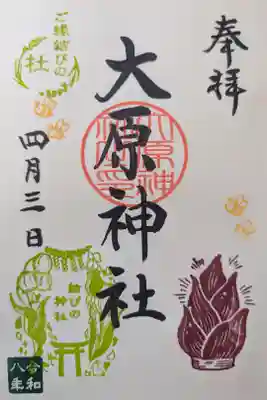 奉拝
大原神社
ご縁結びの
社
四月三日
結びの
神社
令和
八年